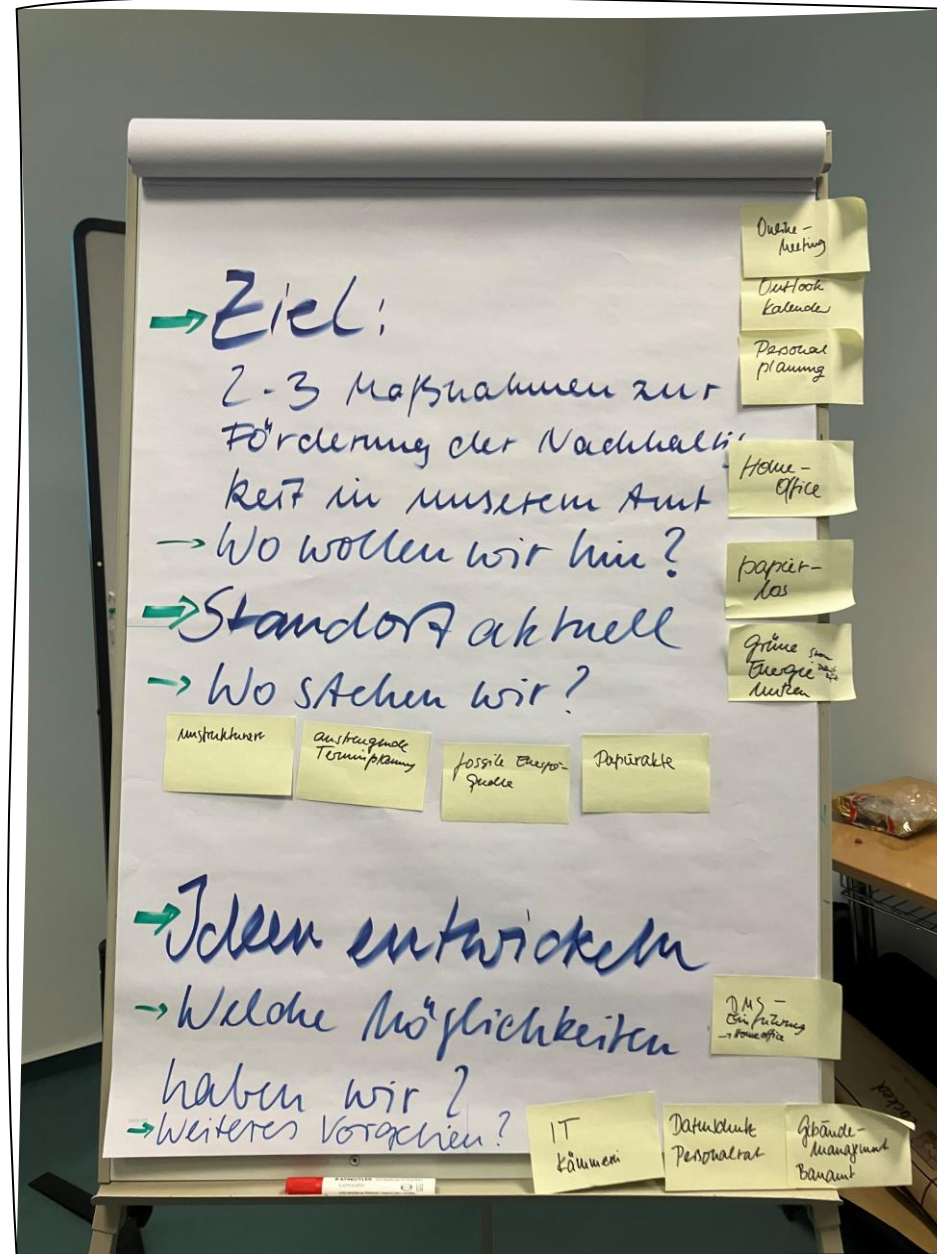 → Ziel:
2-3 Maßnahmen zur
Förderung der Nachhaltig
keit in unserem Amt
→ Wo wollen wir hin?
→ Standort aktuell
→ Wo stehen wir?
unstrukturiert
anstrengende
Terminplanung
fossile Energie-
Quelle
Papierakte
→ Ideen entwickeln
→ Welche Möglichkeiten
haben wir?
→ Weiteres Vorgehen?
Online-
Meeting
Outlook
Kalender
Personal
planung
Home-
Office
papier-
los
grüne
Energie
nutzen
DMS-
Einführung
→ Homeoffice
IT
Kämmerei
Datenschutz
Personalrat
Gebäude-
management
Bauamt
STAEDTLER